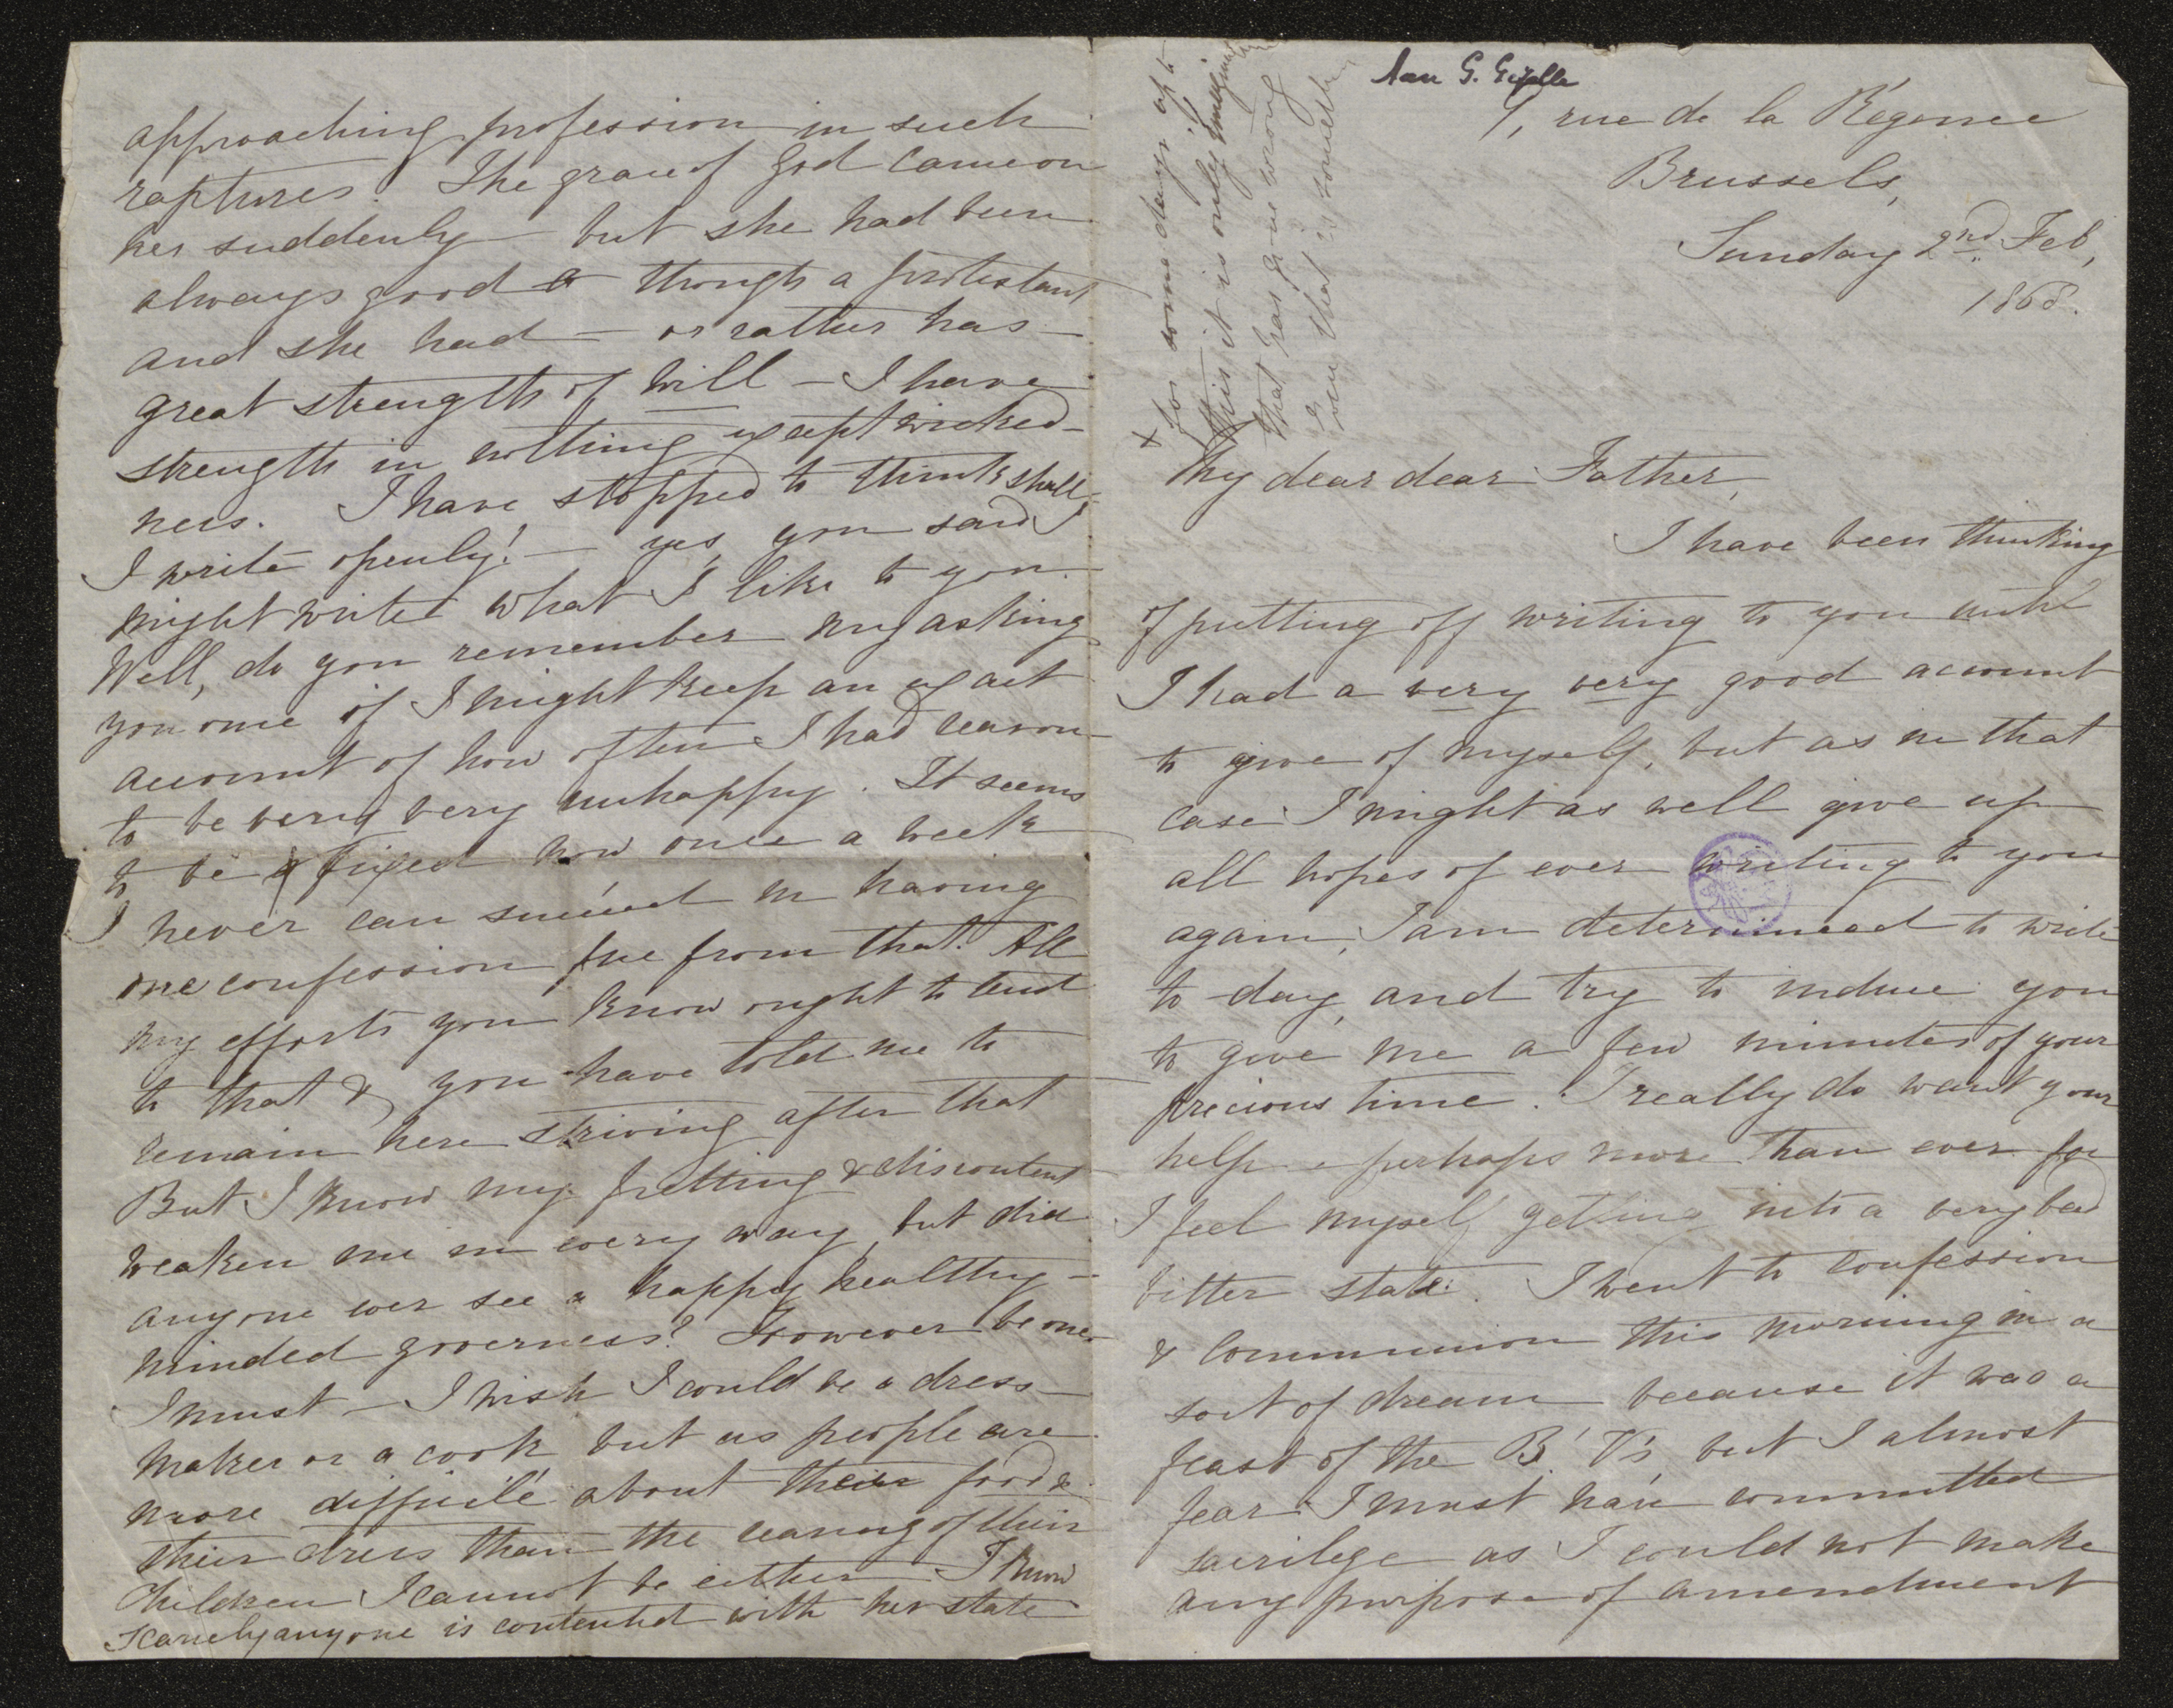 Aan G. Gezelle
9, rue de la Régence
Brussels,
Sunday 2nd Feb,
1868.
+ for some days, up to
this it is only
that has gone wrong
even that is something
My dear dear Father,
I have been thinking
of putting off writing to you until
I had a very very good account
to give of myself, but as in that
case I might as well give up
all hopes of ever writing to you
again, I am determined to write
to-day, and try to induce you
to give me a few minutes of your
precious time. I really do want your
help & perhaps more than ever for
I feel myself getting into a very bad
bitter state. I went to confession
& communion this morning in a
sort of dream because it was a
feast of the B. V's, but I almost
fear I must have committed
sacrilege as I could not make
any purpose of amendment
approaching profession in such
raptures. The grace of God came on
her suddenly — but she had been
always good though a protestant
and she had — or rather has —
great strength of will — I have
strength in nothing except wicked-
ness. I have stopped to think shall
I write openly! — yes, you said I
might write what I like to you.
Well, do you remember my asking
you once if I might keep an exact
account of how often I had reason
to be very very unhappy. It seems
to be fixed now once a week
I never can succeed in having
one confession free from that. All
my efforts you know ought to tend
to that & you have told me to
remain here striving after that
But I know my fretting & discontent
weaken me in every way, but did
anyone ever see a happy healthy-
minded governess? However be one
I must — I wish I could be a dress-
maker or a cook, but as people are
more difficile about their food &
their dress than the rearing of their
children I cannot be either — I know
scarcely anyone is contented with her state